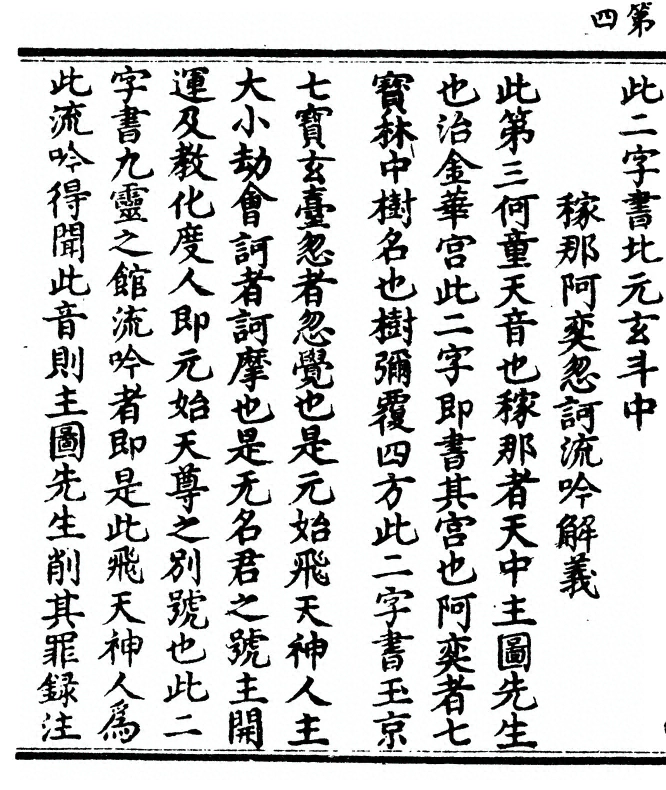 第四
此二字書北元玄斗中
稼那阿奕忽訶流吟解義
此第三何童天音也稼那者天中主圖先生
也治金華宫此二字即書其宫也阿奕者七
寳林中樹名也樹彌覆四方此二字書玉京
七寳玄臺忽者忽覺也是元始飛天神人主
大小劫會訶者訶摩也是无名君之號主開
運及教化度人即元始天尊之別號也此二
字書九靈之館流吟者即是此飛天神人爲
此流吟得聞此音則主圖先生削其罪録注